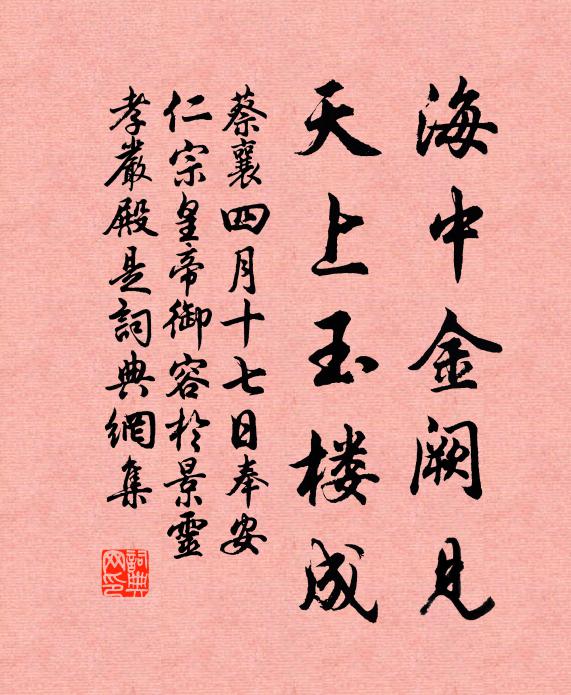 海中金阙見
天上玉楼成
蔡襄四月十七日奉安
仁宗皇帝御容於景靈
孝嚴殿是詞典網集
詞典网印